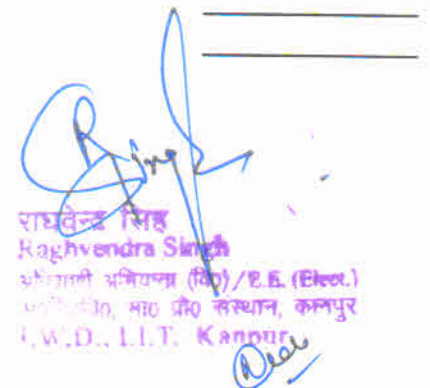 Singh
राघवेन्द्र सिंह
Raghvendra Singh
अभियन्ता (वि०)/E.E. (Elect.)
भा० प्रौ० संस्थान, कानपुर
I.W.D., I.I.T. Kanpur